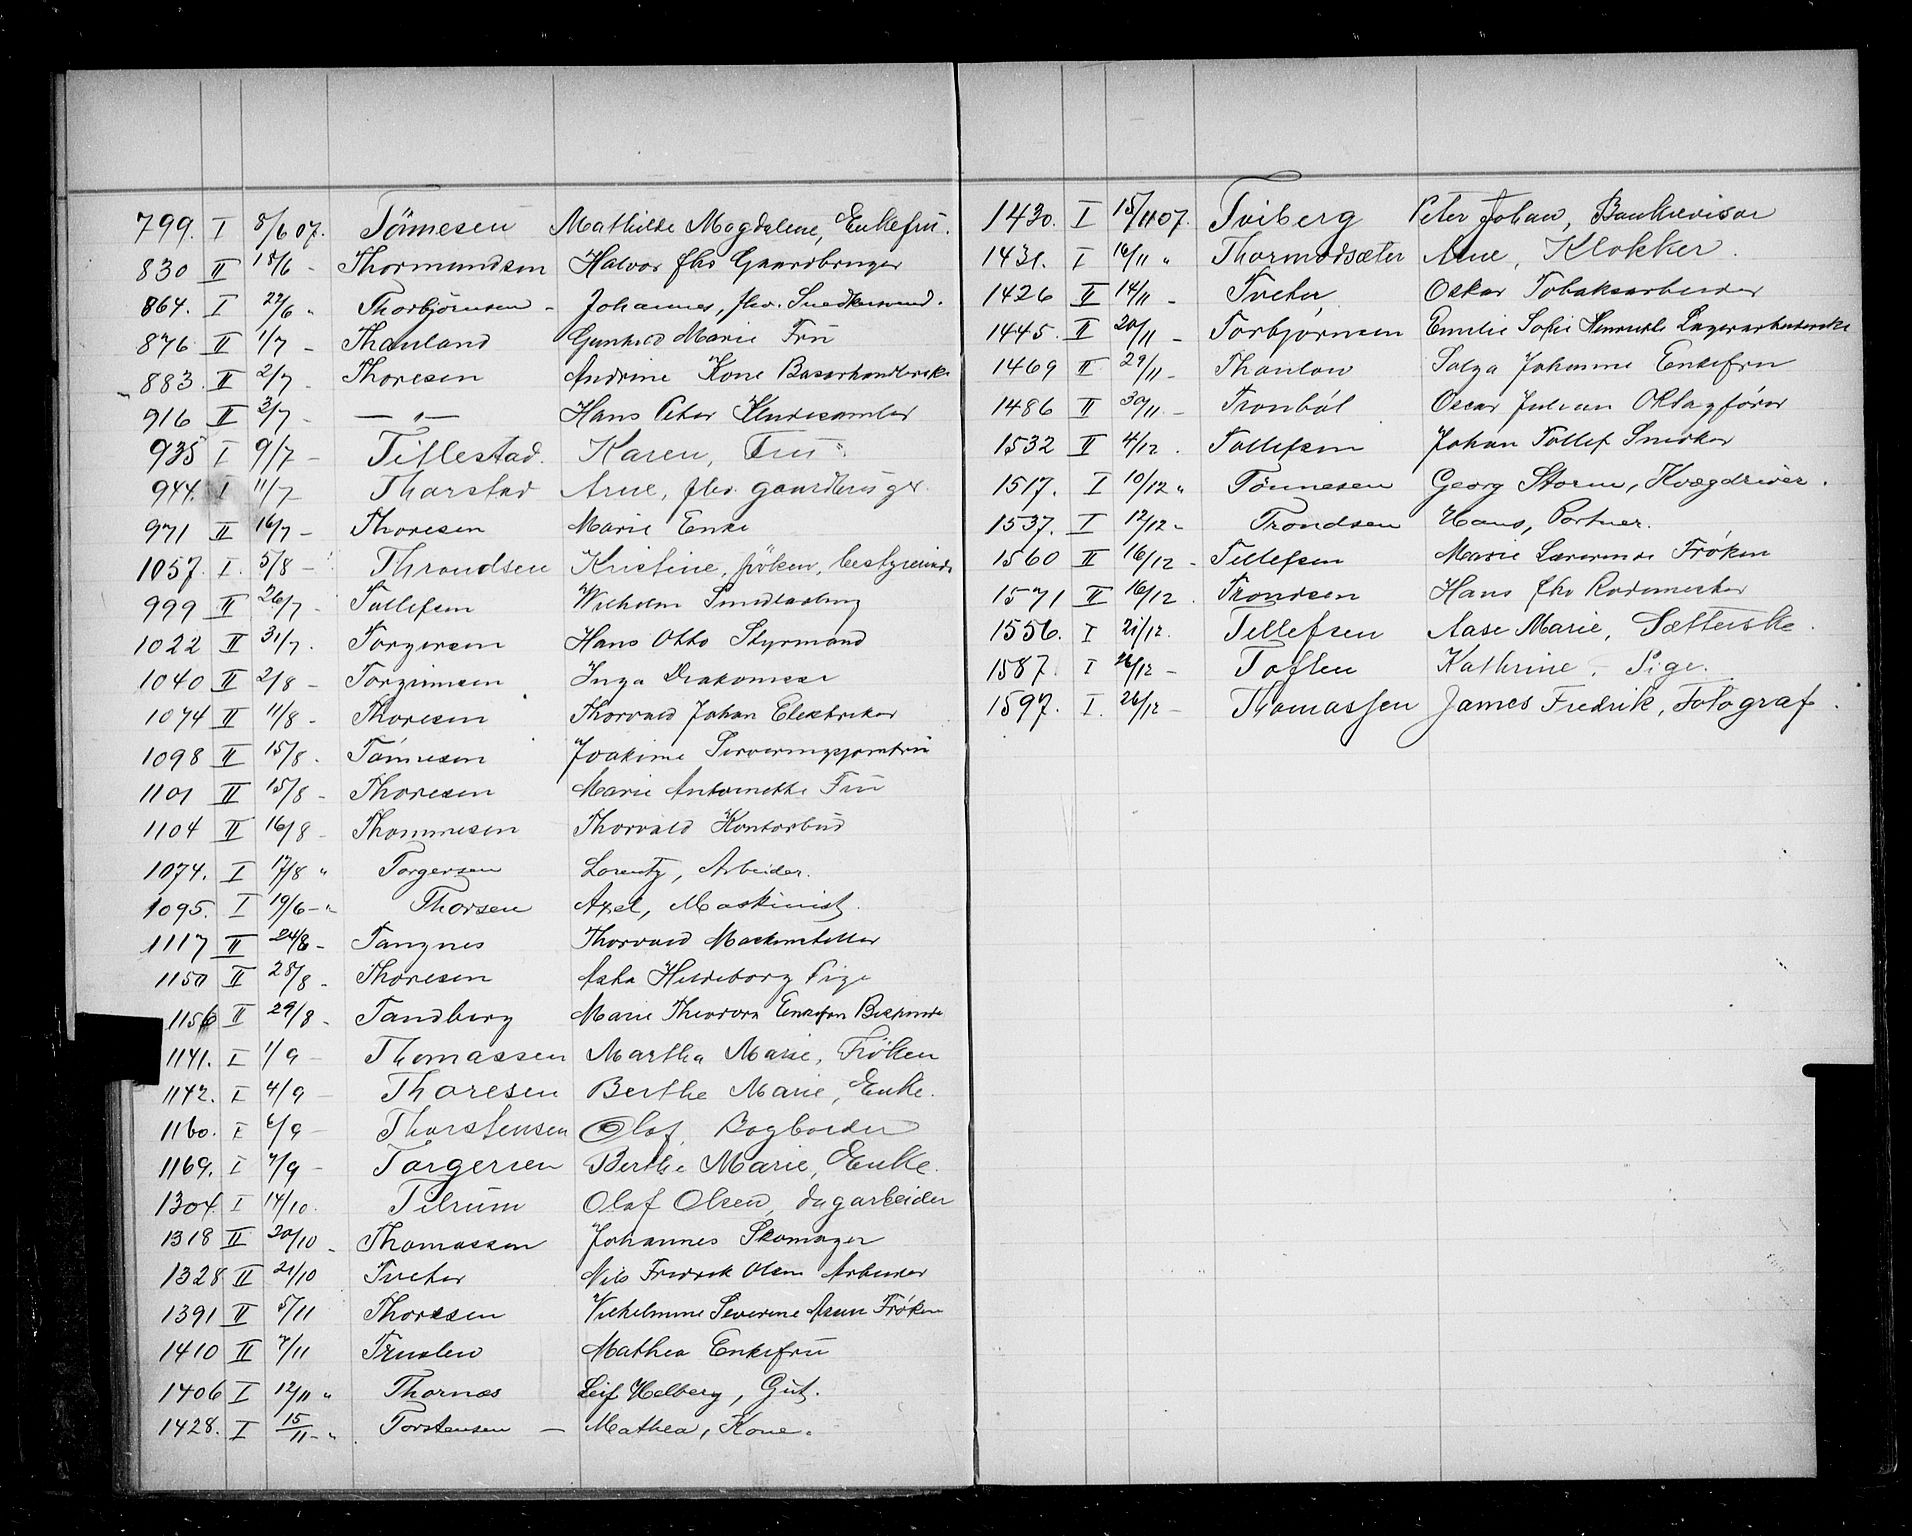 799. I 8/6 07. Tönnesen Mathilde Magdalene, Enkefru.
830 II 18/6 - Thormundsen Halvor fhv Gaardbruger
864. I 22/6 " Thorbjörnsen - Johannes, fhv. Snedkersvend.
876 II 1/7 - Thauland Gunhild Marie Fru
883. II 2/7 - Thoresen Andrine Kone Basarhandlerske
916 II 3/7 - — " — Hans Peter Kludesamler
935 I 9/7 - Tillestad. Karen, Fru.
944. I 11/7 Tharstad Arne, fhv. gaardbruger.
971 II 16/7 - Thoresen Marie Enke
1057. I. 5/8 - Throndsen Kristine, fröken, bestyrerinde
999 II 26/7 - Tollefsen Wilhelm
1022 II 31/7. Torgersen Hans Otto Styrmand
1040 II 2/8 - Torgrimsen Inga Diakonisse
1074 II 11/8 - Thoresen Thorvald Johan Elektriker
1098 II 15/8. Tönnesen Joakime Serveringsjomfru
1101 II 15/8 - Thoresen Marie Antoinette Fru
1104 II 16/8 - Thommesen Thorvald Kontorbud
1074. I 17/8 " Torgersen Lorentz, Arbeider.
1095. I 19/6 - " Thorsen Axel, Maskinist.
1117 II 24/8 - Tangnes Thorvald Maskinsetter
1150 II 28/8 - Thoresen Asta Hildeborg Pige
1156 II 29/8 - Tandberg Marie Theodora Enkefru
1141. I 1/9 - Thomassen Martha Marie, Fröken
1142. I 4/9 - Thoresen Berthe Marie, Enke.
1160. I 6/9 - Thorstensen Olaf, Bogbinder
1169. I 7/9 - Torgersen Berthe Marie, Enke.
1304. I 14/10. Tilrum Olaf Olsen, dagarbeider
1318 II 20/10 - Thomassen Johannes Skomager
1328 II 21/10 Tveter Nils Fredrik Olsen Arbeider
1391 II 5/11 Thoresen Vilhelmine Severine Frøken
1410 II 7/11 Mathea Enkefru
1406 I 12/11 " Thornæs Leif Helberg, Gut.
1428. I 15/11 - " Torstensen — Mathea, Kone.
1430. I 15/11 07. Tviberg Peter Johan, Bankrevisor
1431. I 16/11 " Thormodsæter Arne, Klokker.
1426 II 14/11 - Tveter Oskar Tobaksarbeider
1445. II 20/11 - Torbjørnsen Emilie Sofie Lagerarbeiderske
1469 II 29/11 - Thaulow Johanne Enkefru
1486 II 30/11 - Tronbøl Oscar Julian Oktagfører
1532 II 4/12. Tollefsen Johan Tollef Snedker
1517. I 10/12 " Tönnesen Georg Storm, Kvægdriver.
1537. I 12/12 - Trondsen Hans, Portner.
1560 II 16/12 - Tellefsen Marie Lærerinde Frøken
1571 II 16/12. Trondsen Hans fhv Rodemester
1556. I 21/12. Tellefsen Aase Marie, Sætterske.
1587. I 26/12 - Toften Kathrine, Pige.
1597. I. 26/12 - Thomassen James Fredrik, Fotograf.